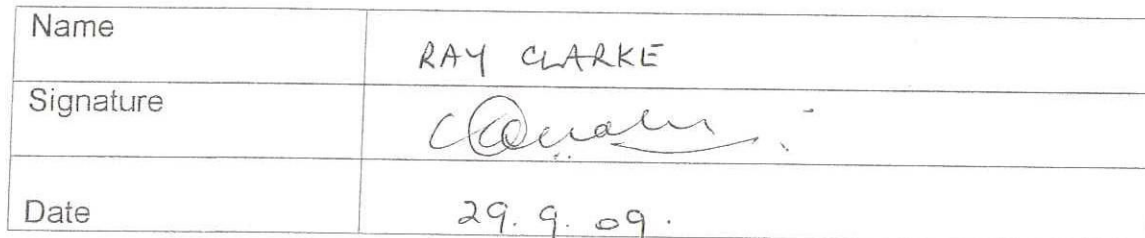 Name RAY CLARKE
Signature
Date 29. 9. 09.